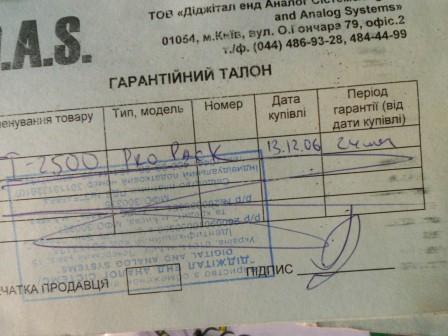 .A.S.
ТОВ "Діджітал енд Аналог Систе
and Analog Systems"
01054, м.Київ, вул. О.Гончара 79, офіс.2
т./ф. (044) 486-93-28, 484-44-99
ГАРАНТІЙНИЙ ТАЛОН
енування товару Тип, модель Номер Дата купівлі Період гарантії (від дати купівлі)
2500 Pro Pack 13.12.06 24 міс
ДІДЖІТАЛ ЕНД АНАЛОГ СИСТЕМС
DIGITAL AND ANALOG SYSTEMS
ЧАТКА ПРОДАВЦЯ ПІДПИС